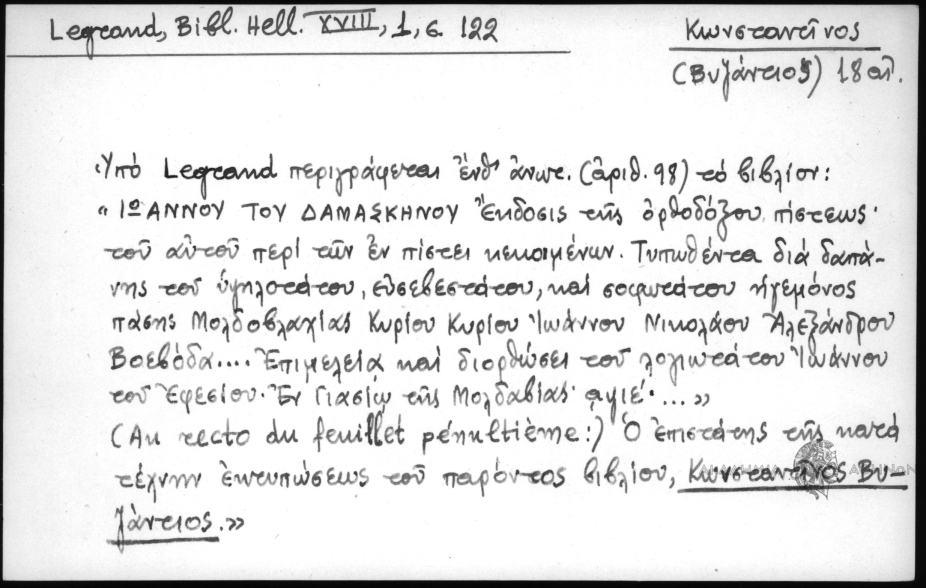 Legrand, Bibl. Hell. XVIII, 1, σ. 122
Κωνσταντῖνος
(Βυζάντιος) 18 αἰ.
Ὑπό Legrand περιγράφεται ἔνθ' ἀνωτ. (ἀριθ. 98) τό βιβλίον:
« ΙΩΑΝΝΟΥ ΤΟΥ ΔΑΜΑΣΚΗΝΟΥ Ἔκδοσις τῆς ὀρθοδόξου πίστεως·
τοῦ αὐτοῦ περί τῶν ἐν πίστει κεκοιμένων. Τυπωθέντα διά δαπά-
νης τοῦ ὑψηλοτάτου, εὐσεβεστάτου, καί σοφωτάτου ἡγεμόνος
πάσης Μολδοβλαχίας Κυρίου Κυρίου Ἰωάννου Νικολάου Ἀλεξάνδρου
Βοεβόδα.... Ἐπιμελείᾳ καί διορθώσει τοῦ λογιωτάτου Ἰωάννου
τοῦ Ἐφεσίου. Ἐν Γιασίῳ τῆς Μολδαβίας· ͵αψιέ·...»
(Au recto du feuillet pénultième:) Ὁ ἐπιστάτης τῆς κατά
τέχνην ἐντυπώσεως τοῦ παρόντος βιβλίου, Κωνσταντῖνος Βυ-
ζάντιος.»